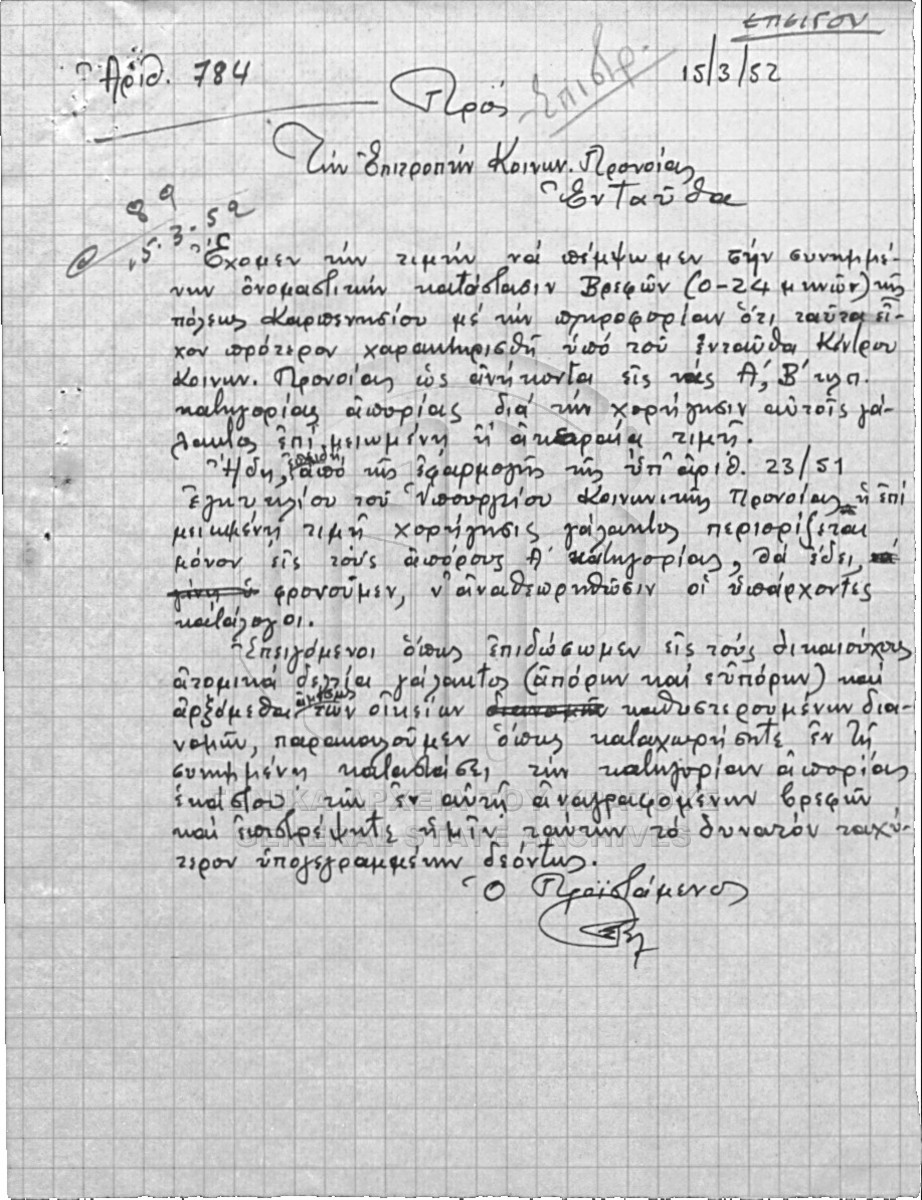 ΕΠΕΙΓΟΝ
Ἀριθ. 784
15/3/52
Πρός
Ἐπιστρ.
Τήν Ἐπιτροπήν Κοινων. Προνοίας
Ἐνταῦθα
89
15.3.52
Ἔχομεν τήν τιμήν νά πέμψωμεν τήν συνημμέ-
νην ὀνομαστικήν κατάστασιν Βρεφῶν (0-24 μηνῶν) τῆς
πόλεως Καρπενησίου μέ τήν πληροφορίαν ὅτι ταῦτα εἶ-
χον πρότερον χαρακτηρισθῆ ὑπό τοῦ ἐνταῦθα Κέντρου
Κοινων. Προνοίας ὡς ἀνήκοντα εἰς τάς Α', Β' κλπ.
κατηγορίας ἀπορίας διά τήν χορήγησιν αὐτοῖς γά-
λακτος ἐπί μειωμένῃ ἤ ἀκεραίᾳ τιμῇ.
Ἤδη, ἐπειδή ἀπό τῆς ἐφαρμογῆς τῆς ὑπ' ἀριθ. 23/51
ἐγκυκλίου τοῦ Ὑπουργείου Κοινωνικῆς Προνοίας ἡ ἐπί
μειωμένῃ τιμῇ χορήγησις γάλακτος περιορίζεται
μόνον εἰς τούς ἀπόρους Α' κατηγορίας, θά ἔδει,
φρονοῦμεν, ν' ἀναθεωρηθῶσιν οἱ ὑπάρχοντες
κατάλογοι.
Ἐπειγόμενοι ὅπως ἐπιδώσωμεν εἰς τούς δικαιούχους
ἀτομικά δελτία γάλακτος (ἀπόρων καί εὐπόρων) καί
ἀρξώμεθα ἀμέσως τῶν οἰκείων καθυστερουμένων δια-
νομῶν, παρακαλοῦμεν ὅπως καταχωρήσητε ἐν τῇ
συνημμένῃ καταστάσει τήν κατηγορίαν ἀπορίας
ἑκάστου τῶν ἐν αὐτῇ ἀναγραφομένων βρεφῶν
καί ἐπιστρέψητε ἡμῖν ταύτην τό δυνατόν ταχύ-
τερον ὑπογεγραμμένην δεόντως.
Ὁ Προϊστάμενος
GENERAL STATE ARCHIVES